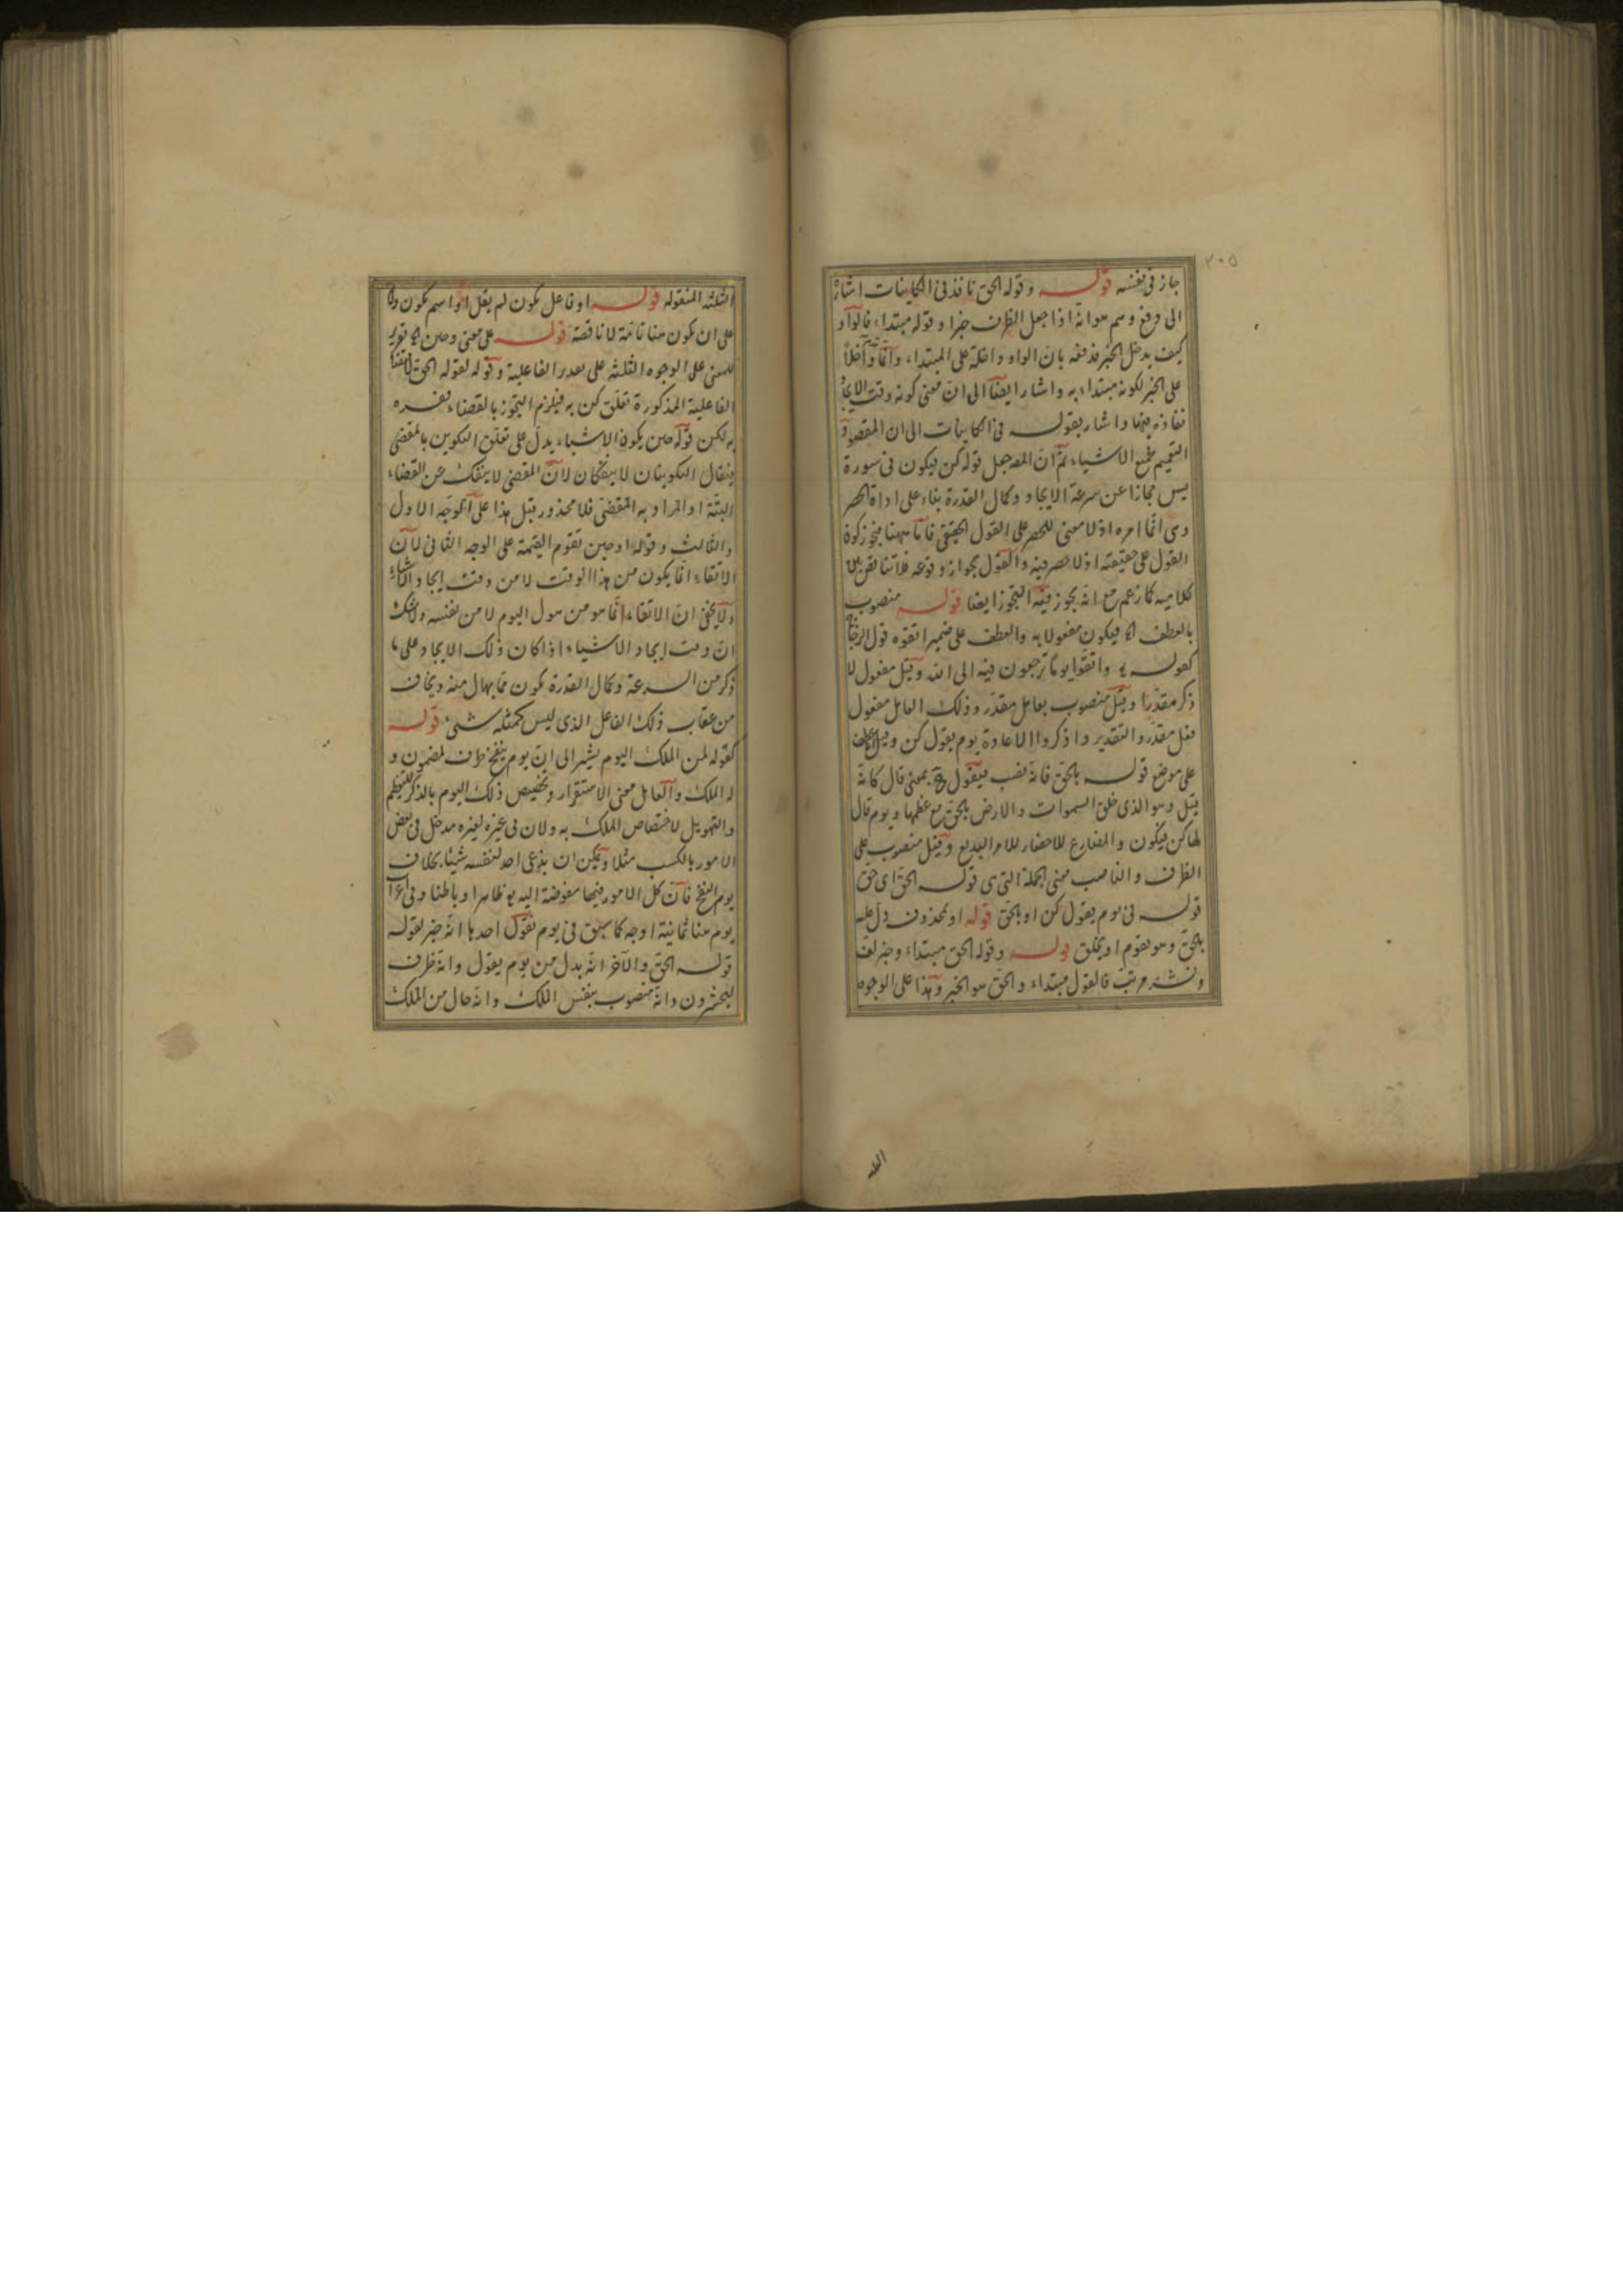 ٢٠٥
جاز فى نفسه قوله وقوله الحق نافذ فى الكاينات اشارة
الى دفع وهم هو انه اذا جعل الظرف خبرا وقوله مبتداء فالواو
كيف يدخل الخبر فدفعه بان الواو داخلة على المبتداء وانما
على الخبر لكونه مبتداء به واشار ايضا الى ان معنى كونه وقت الايجاد
نفاذه فيها واشار بقوله فى الكاينات الى ان المقصود
التعميم لجميع الاشياء ثم ان المص جعل قوله كن فيكون فى سورة
يس مجازا عن سرعة الايجاد وكمال القدرة بناء على اداة الحصر
وهى انما امره اذ لا معنى للحصر على القول الحقيقى فاما ههنا فيجوز كون
القول على حقيقته اذ لا حصر فيه والقول بجواز وقوعه فلا تناقض بين
كلاميه كما زعم مع انه يجوز فيه التجوز ايضا قوله منصوب
بالعطف الخ فيكون مفعولا به والعطف على ضمير اتقوه قول الزجاج
كقوله تع واتقوا يوما ترجعون فيه الى الله وقيل مفعول لا
ذكر مقدرا وقيل منصوب بعامل مقدر وذلك العامل مفعول
فعل مقدر والتقدير واذكروا الاعادة يوم يقول كن وقيل عطف
على موضع قوله بالحق فانه نصب فيقول بمعنى قال كانه
قيل وهو الذى خلق السموات والارض بالحق مع عظمها ويوم قال
لها كن فيكون والمضارع للاحضار للامر البديع وقيل منصوب على
الظرف والناصب معنى الجملة التى هى قوله الحق اى حق
قوله فى يوم يقول كن او بالحق قوله او بمحذوف دل عليه
بالحق وهو يقوم او بخلق قوله وقوله الحق مبتداء وخبر لف
ونشر مرتب فالقول مبتداء والحق هو الخبر وهذا على الوجوه
الثلثة المنقولة قوله او فاعل يكون لم يقل او اسم يكون
على ان يكون هنا تامة لا ناقصة قوله على معنى وحين الخ تقرير
للمعنى على الوجوه الثلثة على تقدير الفاعلية وقوله لقوله الحق
الفاعلية المذكورة تعلق كن به فيلزم التجوز بالقضاء ففسره
به لكن قوله حين يكون الاشياء يدل على تعلق التكوين بالمقضى
فيقال التكوينان لا ينفكان لان المقضى لا ينفك عن القضاء
البتة او المراد به المقضى فلا محذور قيل هذا على الوجه الاول
والثالث وقوله او حين تقوم القيمة على الوجه الثانى لان
الاتقاء انما يكون من هذا الوقت لا من وقت ايجاد الاشياء
ولا يخفى ان الاتقاء انما هو من هول اليوم لا من نفسه ولا شك
ان وقت ايجاد الاشياء اذا كان ذلك الايجاد على ما
ذكر من السرعة وكمال القدرة يكون مما يهال منه ويخاف
من عقاب ذلك الفاعل الذى ليس كمثله شىء قوله
كقوله لمن الملك اليوم يشير الى ان يوم ينفخ ظرف لمضمون و
له الملك والعامل معنى الاستقرار وتخصيص ذلك اليوم بالذكر للتعظيم
والتهويل لاختصاص الملك به ولان فى غيره لغيره مدخل فى بعض
الامور بالكسب مثلا ويمكن ان يدعى احد لنفسه شيئا بخلاف
يوم النفخ فان كل الامور فيها مفوضة اليه تع ظاهرا وباطنا وفى اعراب
يوم هنا ثمانية اوجه كما سبق فى يوم يقول احدها انه خبر لقوله
قوله الحق والآخر انه بدل من يوم يقول وانه ظرف
ليحشرون وانه منصوب بنفس الملك وانه حال من الملك